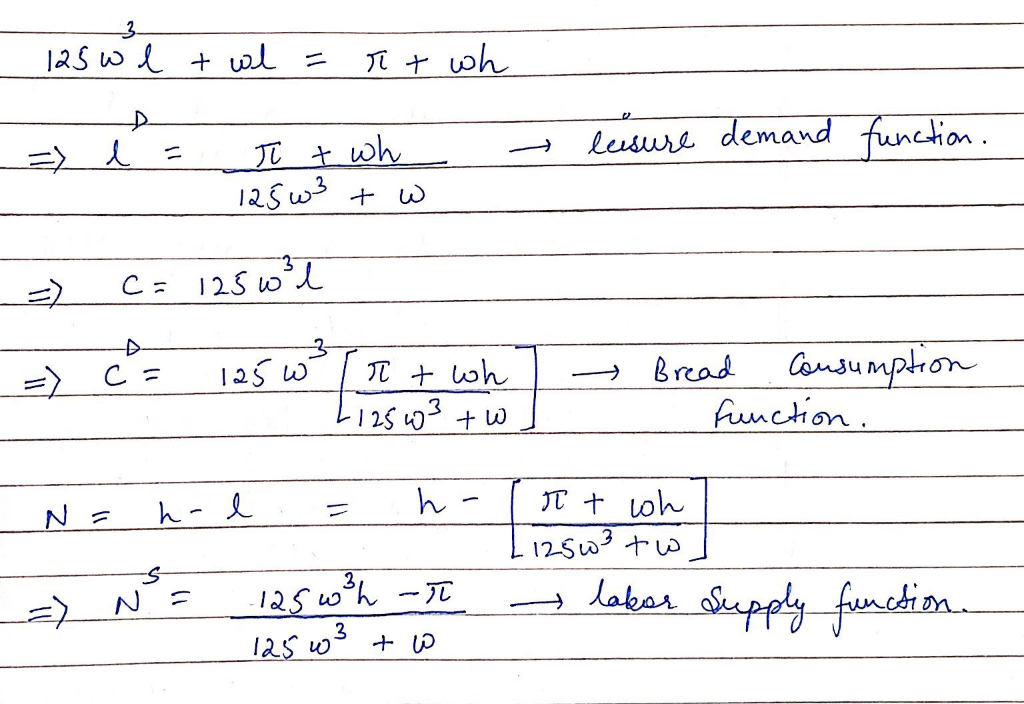 125w³l + wl = π + wh
=> lᴰ = (π + wh)/(125w³ + w) → leisure demand function.
=> C = 125w³l
=> Cᴰ = 125w³ [(π + wh)/(125w³ + w)] → Bread Consumption
function.
N = h - l = h - [(π + wh)/(125w³ + w)]
=> Nˢ = (125w³h - π)/(125w³ + w) → labor Supply function.